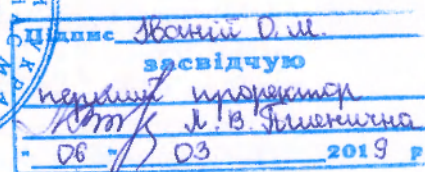 Підпис Іваній О. М.
засвідчую
перший проректор
Л. В. Пшенична
" 06 " 03 2019 р